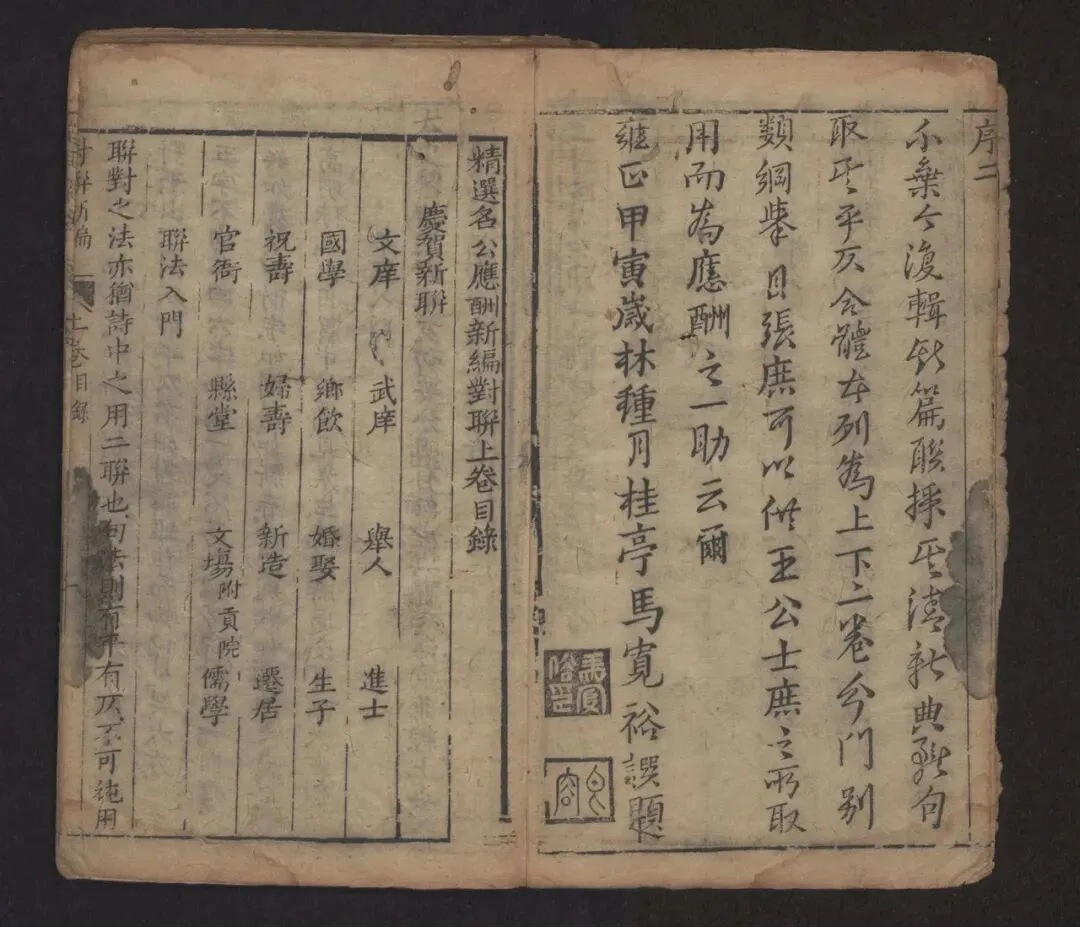 序二
不棄今復輯斯篇聯採其清新典雅句
取其平仄合體本列為上下二卷分門別
類綱舉目張庶可以供王公士庶之所取
用而為應酬之一助云爾
雍正甲寅歲林種月桂亭馬寬裕謨題
馬寬裕
精選名公應酬新編對聯上卷目錄
慶賀新聯
文庠 武庠 舉人 進士
國學 鄉飲 婚娶 生子
祝壽 婦壽 新造 遷居
官衙 縣堂 文塲附貢院 儒學
聯法入門
聯對之法亦猶詩中之用二聯也句法則有平有仄不可純用
對聯新編 上卷目錄